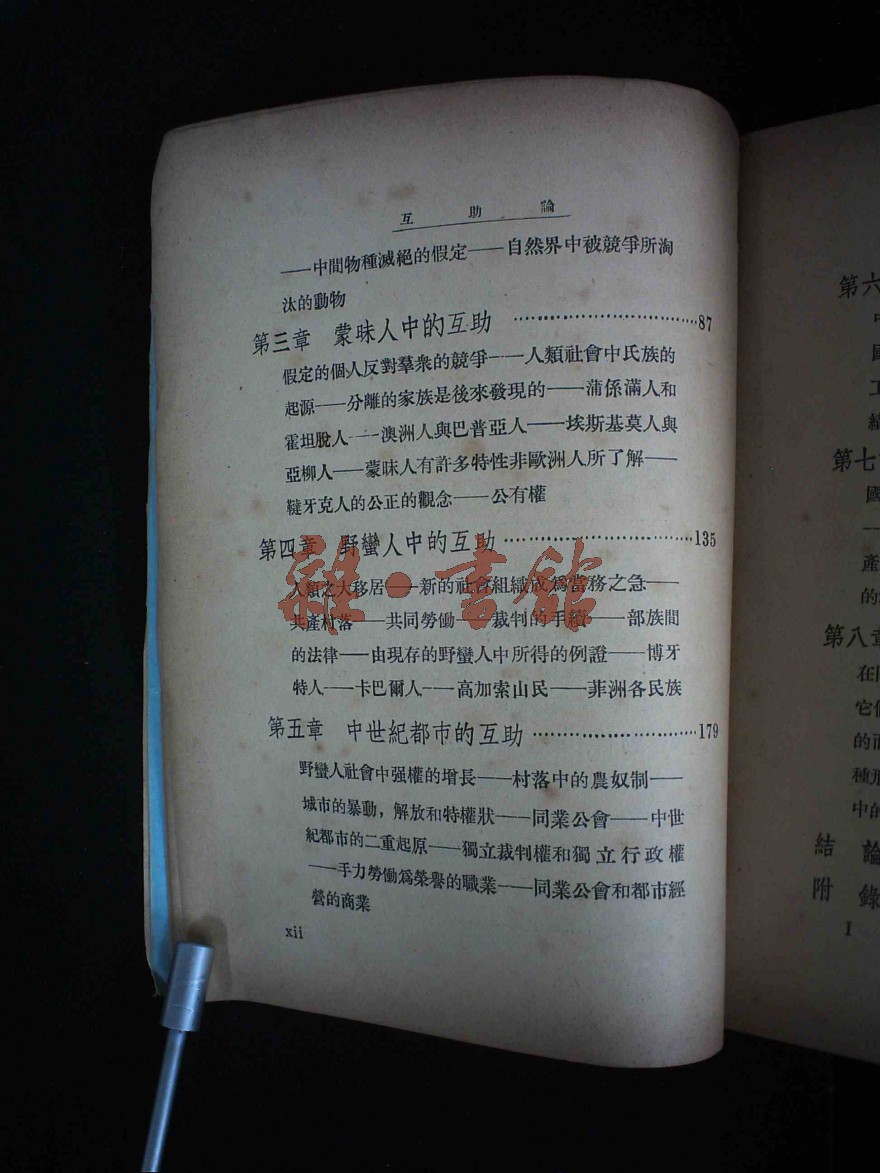 互助論
——中間物種滅絕的假定——自然界中被競爭所淘
汰的動物
第三章　蒙昧人中的互助　…………………………87
假定的個人反對羣衆的競爭——人類社會中氏族的
起源——分離的家族是後來發現的——蒲係滿人和
霍坦脫人——澳洲人與巴普亞人——埃斯基莫人與
亞柳人——蒙昧人有許多特性非歐洲人所了解——
韃牙克人的公正的觀念——公有權
第四章　野蠻人中的互助…………………………135
人類之大移居——新的社會組織成爲當務之急——
共產村落——共同勞働——裁判的手續——部族間
的法律——由現存的野蠻人中所得的例證——博牙
特人——卡巴爾人——高加索山民——菲洲各民族
第五章　中世紀都市的互助…………………………179
野蠻人社會中强權的增長——村落中的農奴制——
城市的暴動，解放和特權狀——同業公會——中世
紀都市的二重起原——獨立裁判權和獨立行政權
——手力勞働爲榮譽的職業——同業公會和都市經
營的商業
xii
雜·書館
第六
第七
國
產
的
第八章
在
它
的
種
中的
結論
附錄
I